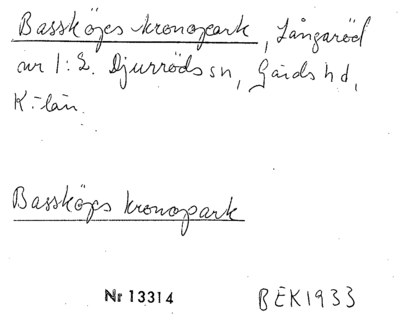 Bassköps kronopark, Långaröd
nr 1:2. Djurröds sn, Gärds hd,
K:län.
Bassköps kronopark
Nr 13314
BEK1933